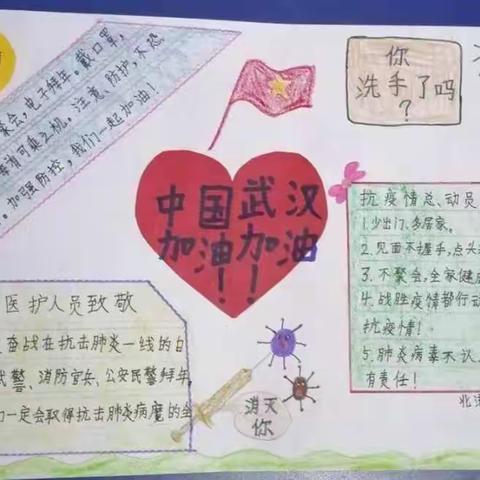 聚会,电子拜年。戴口罩,
毒消可乘之机,注意、防护,不恐
。加强防控,我们一起加油!
你
洗手了吗
?
中国武汉
加油加油
!!
抗疫情总、动员
1.少出门、多居家。
2.见面不握手,点头
3.不聚会,全家健康
4.战胜疫情都行动
抗疫情!
5.肺炎病毒不认
有责任!
医护人员致敬
奋战在抗击肺炎一线的白
武警、消防官兵、公安民警拜年,
们一定会取得抗击肺炎病魔的全
消灭
你